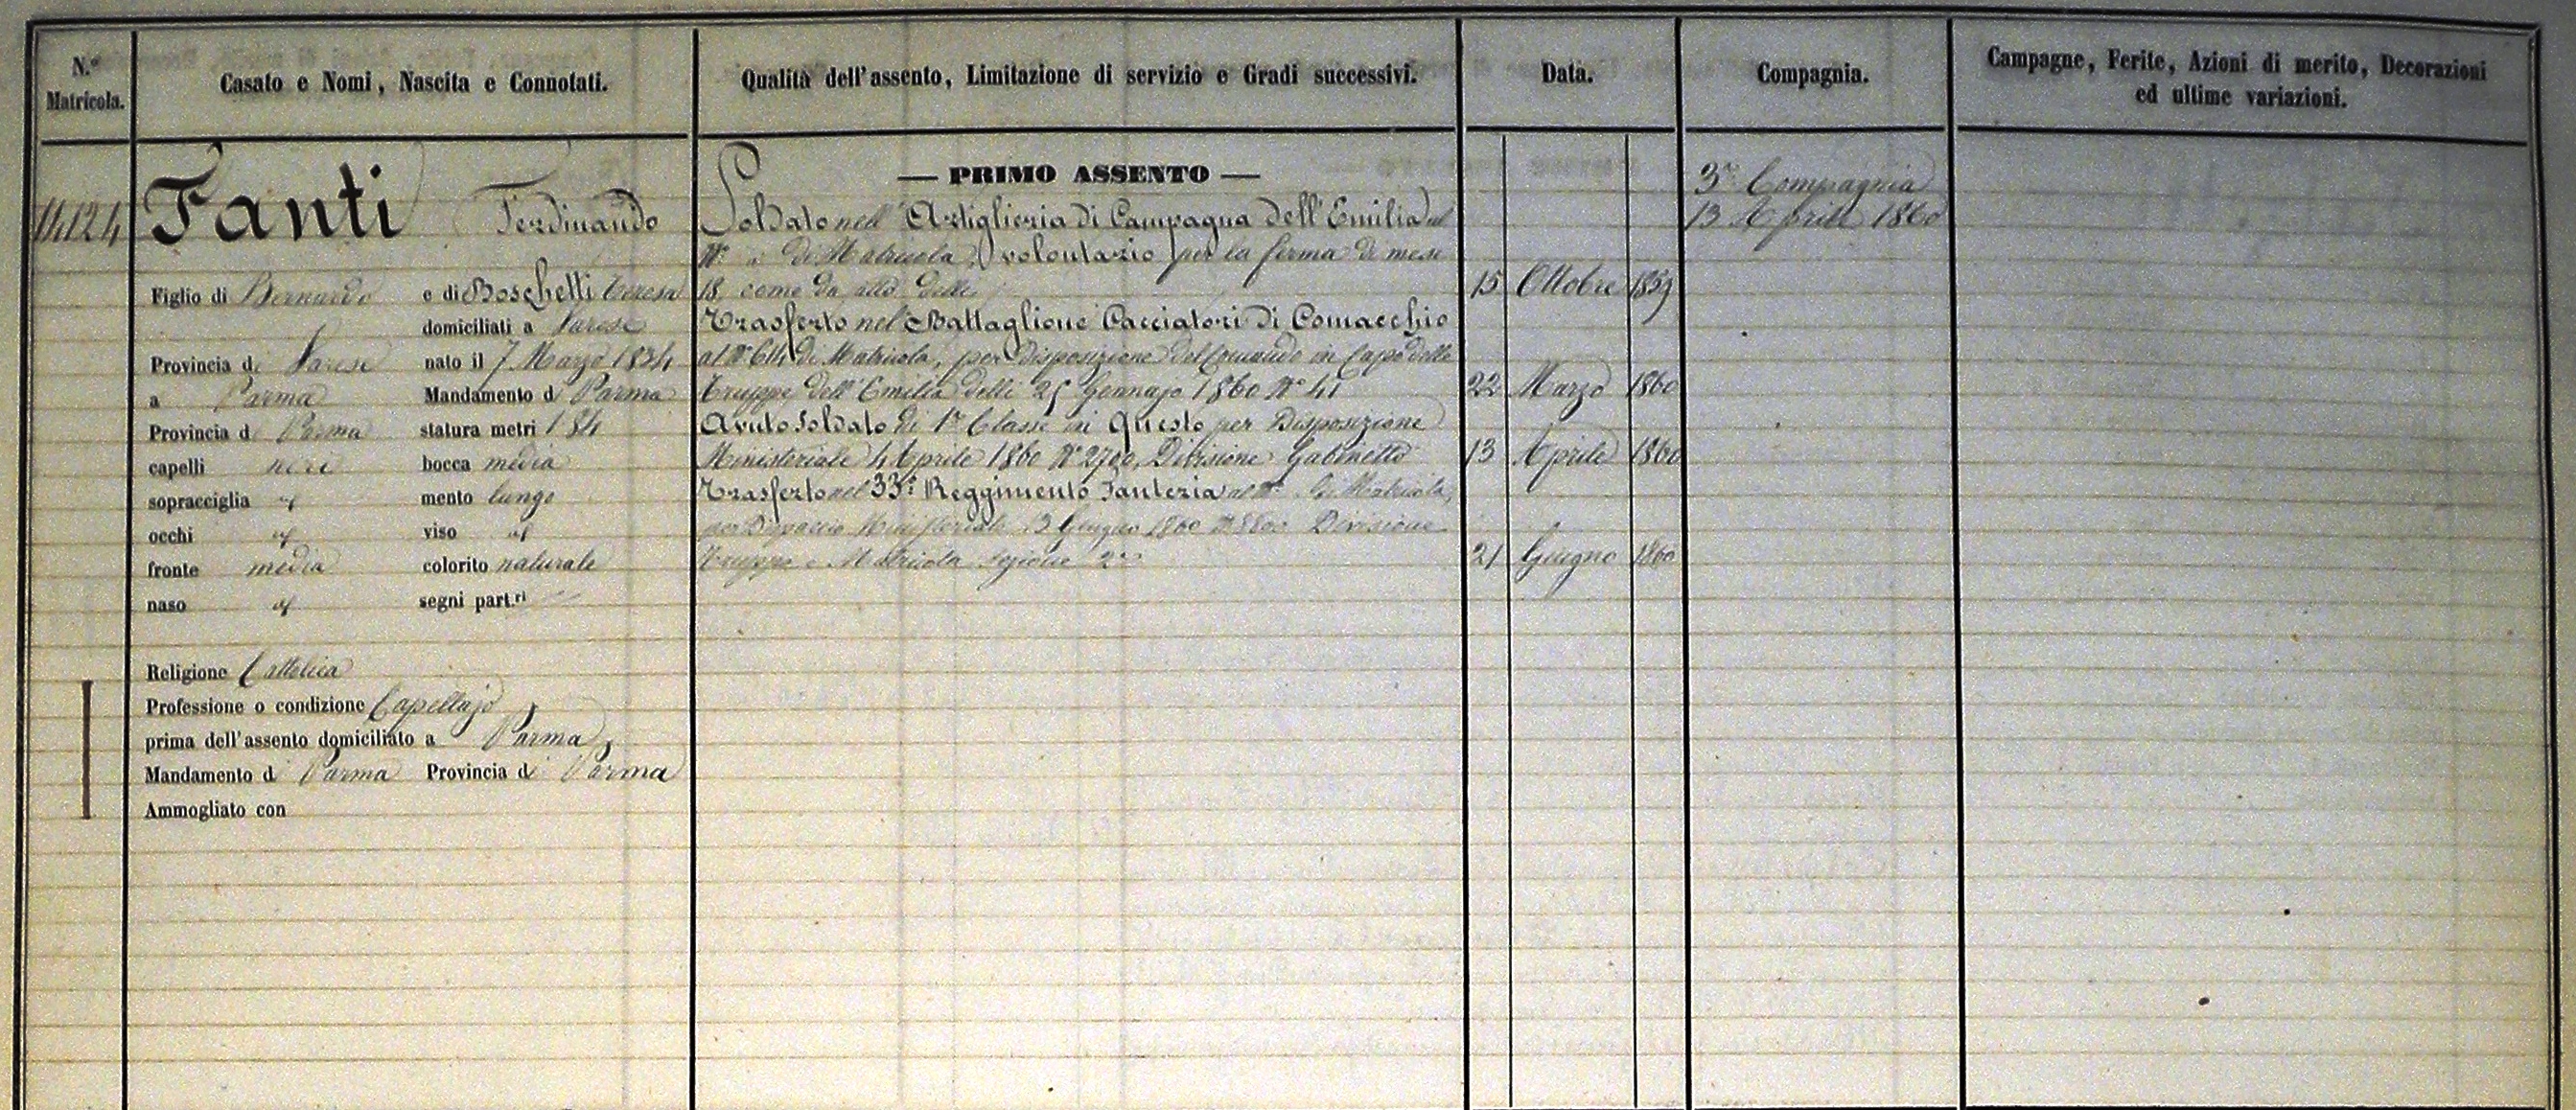 N.º Matricola.
Casato e Nomi, Nascita e Connotati.
Qualità dell'assento, Limitazione di servizio e Gradi successivi.
Data.
Compagnia.
Campagne, Ferite, Azioni di merito, Decorazioni
ed ultime variazioni.
14124
Fanti Ferdinando
Figlio di Bernardo e di Boschetti Teresa
domiciliati a Varese
Provincia di Varese nato il 7 Marzo 1834
a Parma Mandamento di Parma
Provincia di Parma statura metri 1 84
capelli neri bocca media
sopracciglia id mento lungo
occhi id viso id
fronte media colorito naturale
naso id segni part.ri
Religione Cattolica
Professione o condizione Capellajo
prima dell'assento domiciliato a Parma
Mandamento di Parma Provincia di Parma
Ammogliato con
— PRIMO ASSENTO —
Soldato nell'Artiglieria di Campagna dell'Emilia al
Nº di Matricola, volontario per la ferma di mesi
18 come da atto delli 15 Ottobre 1859
Trasferto nel Battaglione Cacciatori di Comacchio
al Nº 614 di Matricola, per disposizione del Comando in Capo delle
Truppe dell'Emilia delli 25 Gennajo 1860 Nº 41 22 Marzo 1860
Avuto Soldato di 1ª Classe in Questo per Disposizione
Ministeriale 4 Aprile 1860 Nº 2700, Divisione Gabinetto 13 Aprile 1860
Trasferto nel 33º Reggimento Fanteria al Nº di Matricola,
per Dispaccio Ministeriale 13 Giugno 1860 Nº 8800 Divisione
Truppe e Matricola Sezione 2ª 21 Giugno 1860
3ª Compagnia
13 Aprile 1860